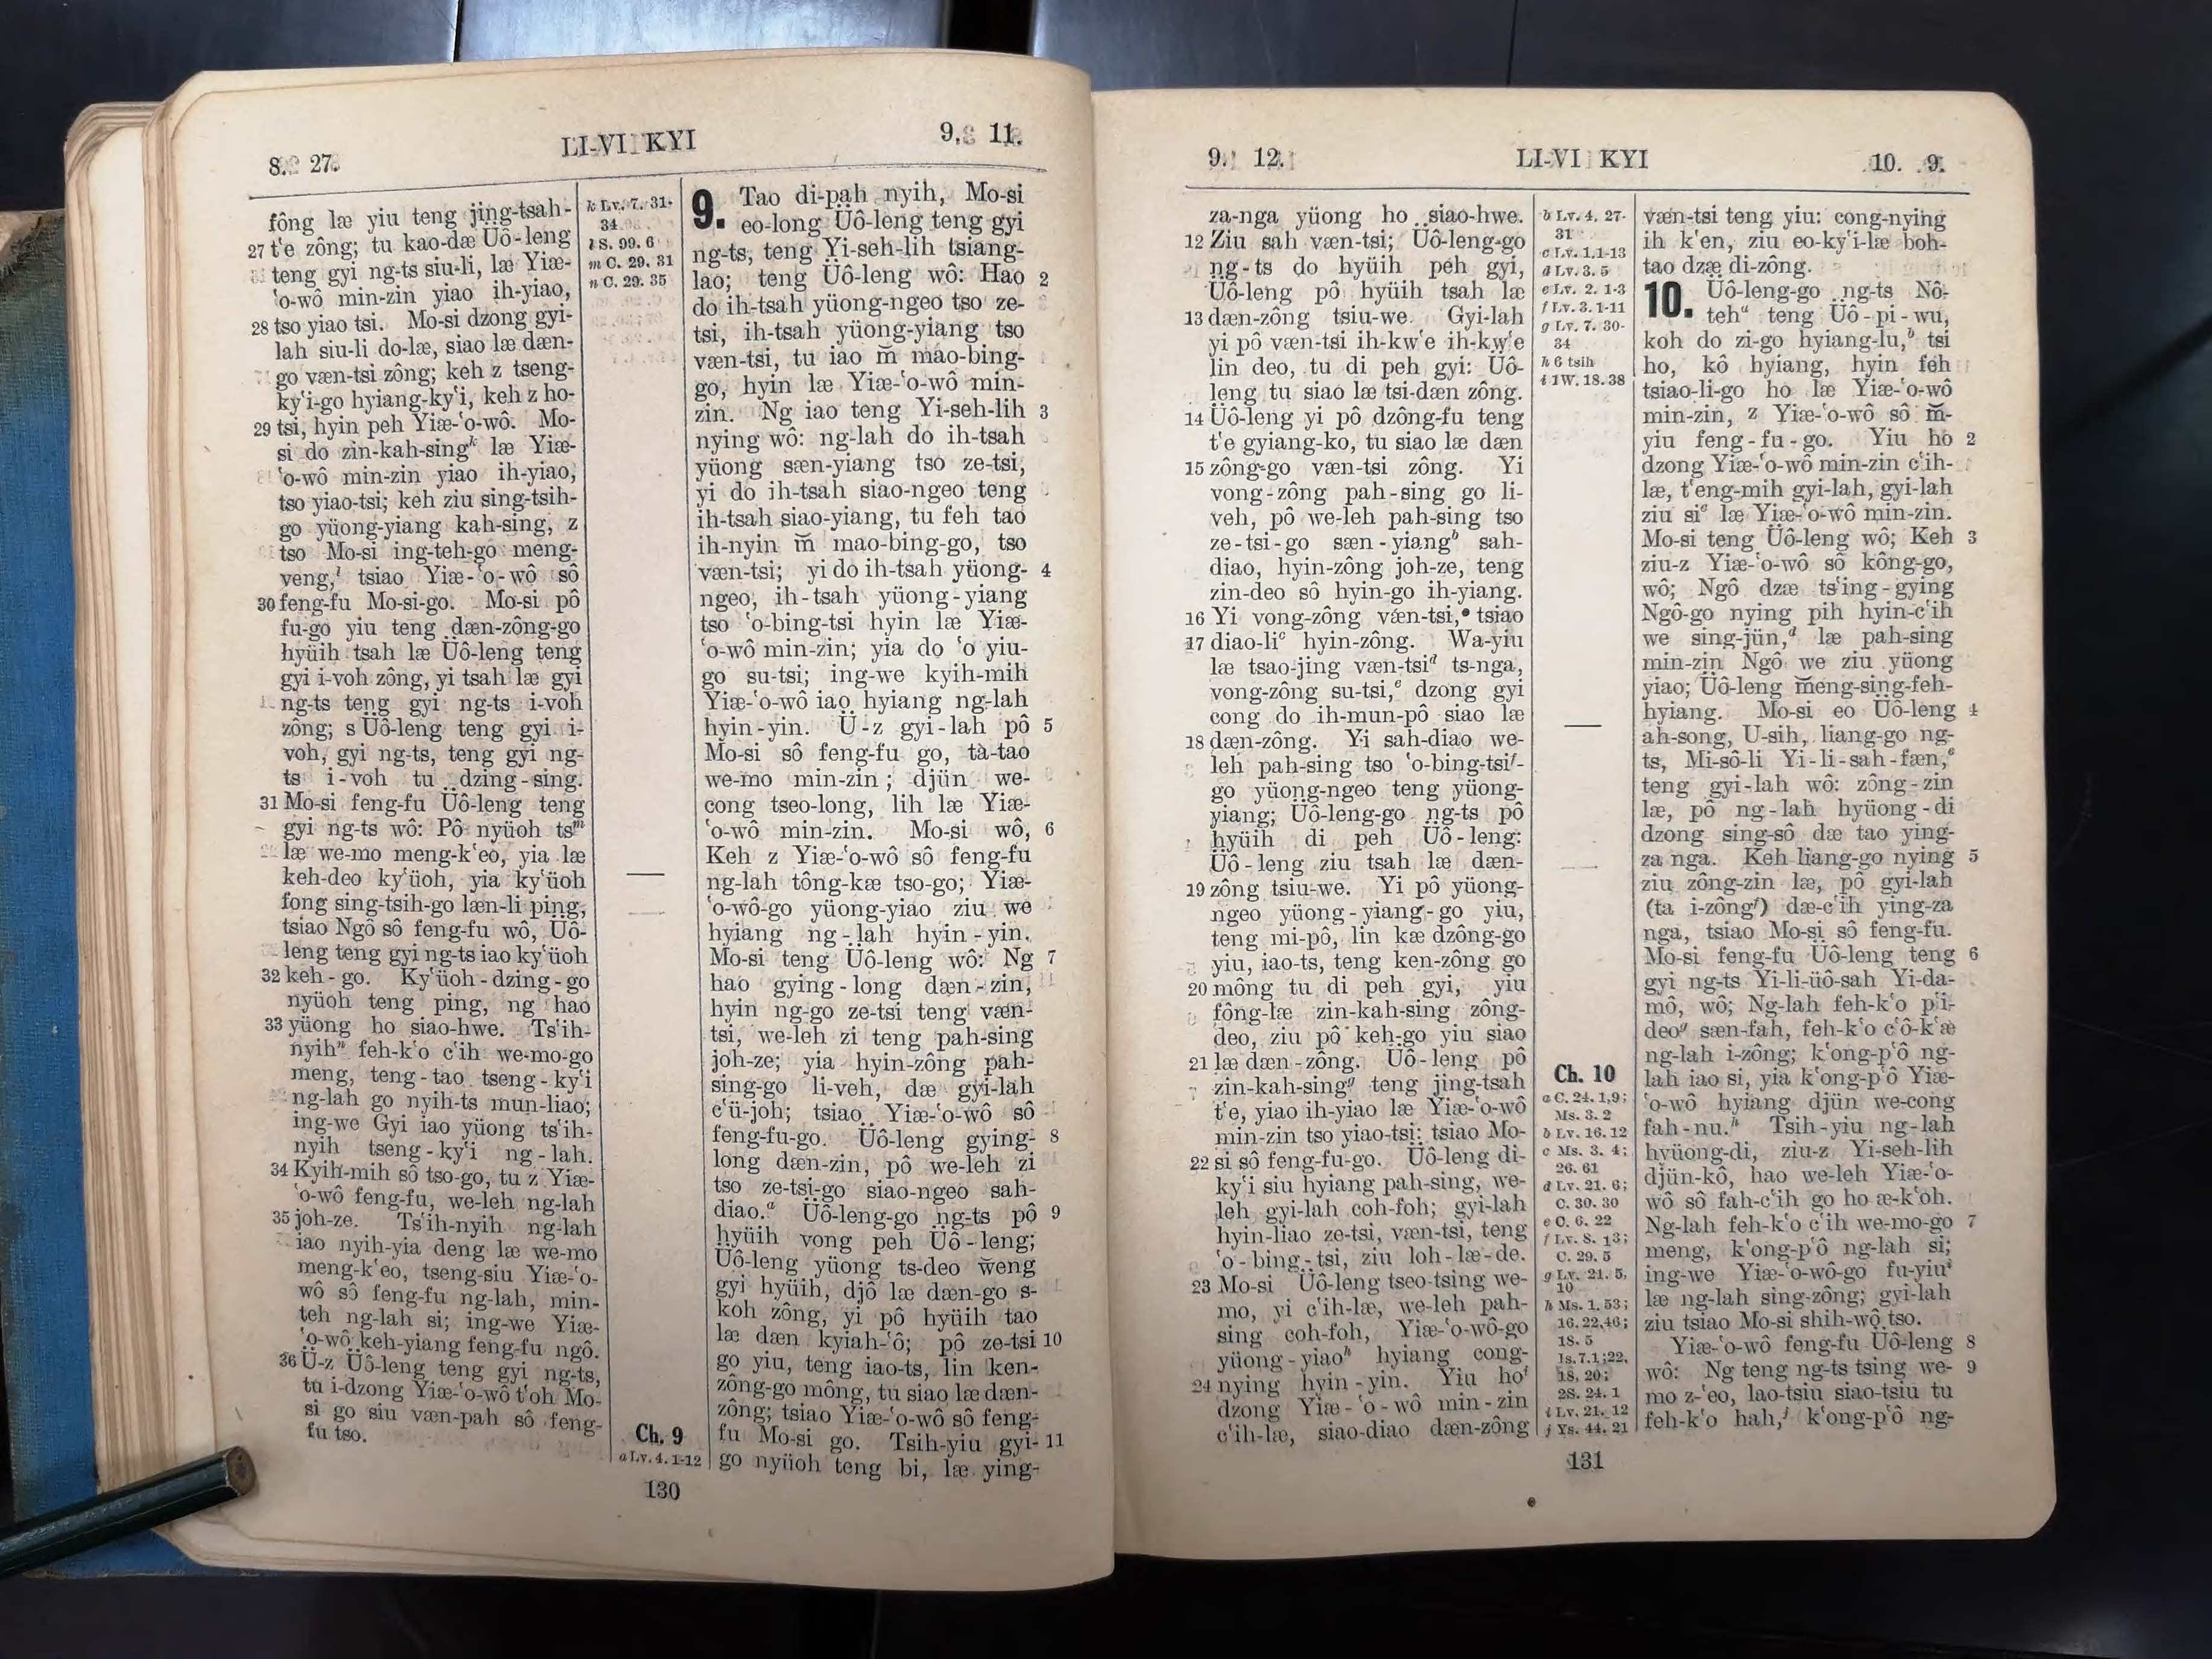 8. 27.
LI-VI KYI
9. 11.
fông læ yiu teng jing-tsah-
27 t'e zông; tu kao-dæ Üô-leng
teng gyi ng-ts siu-li, læ Yiæ-
'o-wô min-zin yiao ih-yiao,
28 tso yiao tsi. Mo-si dzong gyi-
lah siu-li do-læ, siao læ dæn-
go væn-tsi zông; keh z tseng-
ky'i-go hyiang-ky'i, keh z ho-
29 tsi, hyin peh Yiæ-'o-wô. Mo-
si do zin-kah-sing k læ Yiæ-
'o-wô min-zin yiao ih-yiao,
tso yiao-tsi; keh ziu sing-tsih-
go yüong-yiang kah-sing, z
tso Mo-si ing-teh-go meng-
veng, l tsiao Yiæ-'o-wô sô
30 feng-fu Mo-si-go. Mo-si pô
fu-go yiu teng dæn-zông-go
hyüih tsah læ Üô-leng teng
gyi i-voh zông, yi tsah læ gyi
ng-ts teng gyi ng-ts i-voh
zông; s Üô-leng teng gyi i-
voh, gyi ng-ts, teng gyi ng-
ts i-voh tu dzing-sing.
31 Mo-si feng-fu Üô-leng teng
gyi ng-ts wô: Pô nyüoh ts m
læ we-mo meng-k'eo, yia læ
keh-deo ky'üoh, yia ky'üoh
fong sing-tsih-go læn-li ping,
tsiao Ngô sô feng-fu wô, Üô-
leng teng gyi ng-ts iao ky'üoh
32 keh-go. Ky'üoh-dzing-go
nyüoh teng ping, ng hao
33 yüong ho siao-hwe. Ts'ih-
nyih n feh-k'o c'ih we-mo-go
meng, teng-tao tseng-ky'i
ng-lah go nyih-ts mun-liao;
ing-we Gyi iao yüong ts'ih-
nyih tseng-ky'i ng-lah.
34 Kyih-mih sô tso-go, tu z Yiæ-
'o-wô feng-fu, we-leh ng-lah
35 joh-ze. Ts'ih-nyih ng-lah
iao nyih-yia deng læ we-mo
meng-k'eo, tseng-siu Yiæ-'o-
wô sô feng-fu ng-lah, min-
teh ng-lah si; ing-we Yiæ-
'o-wô keh-yiang feng-fu ngô.
36 Ü-z Üô-leng teng gyi ng-ts,
tu i-dzong Yiæ-'o-wô t'oh Mo-
si go siu væn-pah sô feng-
fu tso.
k Lv. 7. 31-
34
l S. 99. 6
m C. 29. 31
n C. 29. 35
Ch. 9
a Lv. 4. 1-12
9. Tao di-pah nyih, Mo-si
eo-long Üô-leng teng gyi
ng-ts, teng Yi-seh-lih tsiang-
lao; teng Üô-leng wô: Hao 2
do ih-tsah yüong-ngeo tso ze-
tsi, ih-tsah yüong-yiang tso
væn-tsi, tu iao m̆ mao-bing-
go, hyin læ Yiæ-'o-wô min-
zin. Ng iao teng Yi-seh-lih 3
nying wô: ng-lah do ih-tsah
yüong sæn-yiang tso ze-tsi,
yi do ih-tsah siao-ngeo teng
ih-tsah siao-yiang, tu feh tao
ih-nyin m̆ mao-bing-go, tso
væn-tsi; yi do ih-tsah yüong- 4
ngeo, ih-tsah yüong-yiang
tso 'o-bing-tsi hyin læ Yiæ-
'o-wô min-zin; yia do 'o yiu-
go su-tsi; ing-we kyih-mih
Yiæ-'o-wô iao hyiang ng-lah
hyin-yin. Ü-z gyi-lah pô 5
Mo-si sô feng-fu go, tà-tao
we-mo min-zin; djün we-
cong tseo-long, lih læ Yiæ-
'o-wô min-zin. Mo-si wô, 6
Keh z Yiæ-'o-wô sô feng-fu
ng-lah tông-kæ tso-go; Yiæ-
'o-wô-go yüong-yiao ziu we
hyiang ng-lah hyin-yin.
Mo-si teng Üô-leng wô: Ng 7
hao gying-long dæn-zin,
hyin ng-go ze-tsi teng væn-
tsi, we-leh zi teng pah-sing
joh-ze; yia hyin-zông pah-
sing-go li-veh, dæ gyi-lah
c'ü-joh; tsiao Yiæ-'o-wô sô
feng-fu-go. Üô-leng gying- 8
long dæn-zin, pô we-leh zi
tso ze-tsi-go siao-ngeo sah-
diao. a Üô-leng-go ng-ts pô 9
hyüih vong peh Üô-leng;
Üô-leng yüong ts-deo w̆eng
gyi hyüih, djô læ dæn-go s-
koh zông, yi pô hyüih tao
læ dæn kyiah-'ô; pô ze-tsi 10
go yiu, teng iao-ts, lin ken-
zông-go mông, tu siao læ dæn-
zông; tsiao Yiæ-'o-wô sô feng-
fu Mo-si go. Tsih-yiu gyi- 11
go nyüoh teng bi, læ ying-
130
9. 12.
LI-VI KYI
10. 9.
za-nga yüong ho siao-hwe.
12 Ziu sah væn-tsi; Üô-leng-go
ng-ts do hyüih peh gyi,
Üô-leng pô hyüih tsah læ
13 dæn-zông tsiu-we. Gyi-lah
yi pô væn-tsi ih-kw'e ih-kw'e
lin deo, tu di peh gyi: Üô-
leng tu siao læ tsi-dæn zông.
14 Üô-leng yi pô dzông-fu teng
t'e gyiang-ko, tu siao læ dæn
15 zông-go væn-tsi zông. Yi
vong-zông pah-sing go li-
veh, pô we-leh pah-sing tso
ze-tsi-go sæn-yiang b sah-
diao, hyin-zông joh-ze, teng
zin-deo sô hyin-go ih-yiang.
16 Yi vong-zông væn-tsi, tsiao
17 diao-li c hyin-zông. Wa-yiu
læ tsao-jing væn-tsi d ts-nga,
vong-zông su-tsi, e dzong gyi
cong do ih-mun-pô siao læ
18 dæn-zông. Yi sah-diao we-
leh pah-sing tso 'o-bing-tsi f-
go yüong-ngeo teng yüong-
yiang; Üô-leng-go ng-ts pô
hyüih di peh Üô-leng:
Üô-leng ziu tsah læ dæn-
19 zông tsiu-we. Yi pô yüong-
ngeo yüong-yiang-go yiu,
teng mi-pô, lin kæ dzông-go
yiu, iao-ts, teng ken-zông go
20 mông tu di peh gyi, yiu
fông-læ zin-kah-sing zông-
deo, ziu pô keh-go yiu siao
21 læ dæn-zông. Üô-leng pô
zin-kah-sing g teng jing-tsah
t'e, yiao ih-yiao læ Yiæ-'o-wô
min-zin tso yiao-tsi: tsiao Mo-
22 si sô feng-fu-go. Üô-leng di-
ky'i siu hyiang pah-sing, we-
leh gyi-lah coh-foh; gyi-lah
hyin-liao ze-tsi, væn-tsi, teng
'o-bing-tsi, ziu loh-læ-de.
23 Mo-si Üô-leng tseo-tsing we-
mo, yi c'ih-læ, we-leh pah-
sing coh-foh, Yiæ-'o-wô-go
yüong-yiao h hyiang cong-
24 nying hyin-yin. Yiu ho i
dzong Yiæ-'o-wô min-zin
c'ih-læ, siao-diao dæn-zông
b Lv. 4. 27-
31
c Lv. 1.1-13
d Lv. 3. 5
e Lv. 2. 1-3
f Lv. 3. 1-11
g Lv. 7. 30-
34
h 6 tsih
i 1W. 18. 38
Ch. 10
a C. 24. 1,9;
Ms. 3. 2
b Lv. 16. 12
c Ms. 3. 4;
26. 61
d Lv. 21. 6;
C. 30. 30
e C. 6. 22
f Lv. 8. 13;
C. 29. 5
g Lv. 21. 5,
10
h Ms. 1. 53;
16. 22,46;
18. 5
1s. 7. 1; 22,
18, 20;
2S. 24. 1
i Lv. 21. 12
j Ys. 44. 21
væn-tsi teng yiu: cong-nying
ih k'en, ziu eo-ky'i-læ boh-
tao dzæ di-zông.
10. Üô-leng-go ng-ts Nô-
teh a teng Üô-pi-wu,
koh do zi-go hyiang-lu, b tsi
ho, kô hyiang, hyin feh
tsiao-li-go ho læ Yiæ-'o-wô
min-zin, z Yiæ-'o-wô sô m̆-
yiu feng-fu-go. Yiu ho 2
dzong Yiæ-'o-wô min-zin c'ih-
læ, t'eng-mih gyi-lah, gyi-lah
ziu si c læ Yiæ-'o-wô min-zin.
Mo-si teng Üô-leng wô; Keh 3
ziu-z Yiæ-'o-wô sô kông-go,
wô; Ngô dzæ ts'ing-gying
Ngô-go nying pih hyin-c'ih
we sing-jün, d læ pah-sing
min-zin Ngô we ziu yüong
yiao; Üô-leng m̆eng-sing-feh-
hyiang. Mo-si eo Üô-leng 4
ah-song, U-sih, liang-go ng-
ts, Mi-sô-li Yi-li-sah-fæn, e
teng gyi-lah wô: zông-zin
læ, pô ng-lah hyüong-di
dzong sing-sô dæ tao ying-
za nga. Keh liang-go nying 5
ziu zông-zin læ, pô gyi-lah
(ta i-zông f) dæ-c'ih ying-za
nga, tsiao Mo-si sô feng-fu.
Mo-si feng-fu Üô-leng teng 6
gyi ng-ts Yi-li-üô-sah Yi-da-
mô, wô; Ng-lah feh-k'o p'i-
deo g sæn-fah, feh-k'o c'ô-k'æ
ng-lah i-zông; k'ong-p'ô ng-
lah iao si, yia k'ong-p'ô Yiæ-
'o-wô hyiang djün we-cong
fah-nu. h Tsih-yiu ng-lah
hyüong-di, ziu-z Yi-seh-lih
djün-kô, hao we-leh Yiæ-'o-
wô sô fah-c'ih go ho æ-k'oh.
Ng-lah feh-k'o c'ih we-mo-go 7
meng, k'ong-p'ô ng-lah si;
ing-we Yiæ-'o-wô-go fu-yiu i
læ ng-lah sing-zông; gyi-lah
ziu tsiao Mo-si shih-wô tso.
Yiæ-'o-wô feng-fu Üô-leng 8
wô: Ng teng ng-ts tsing we- 9
mo z-'eo, lao-tsiu siao-tsiu tu
feh-k'o hah, j k'ong-p'ô ng-
131